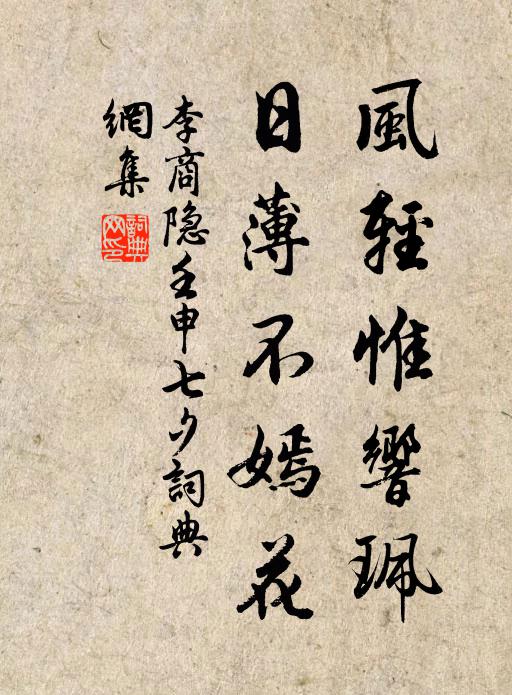 風輕惟響珮
日薄不嫣花
李商隐壬申七夕詞典
網集
詞典網印